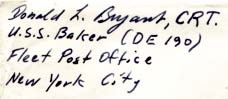 Donald L. Bryant, CRT.
U.S.S. Baker (DE 190)
Fleet Post Office
New York City